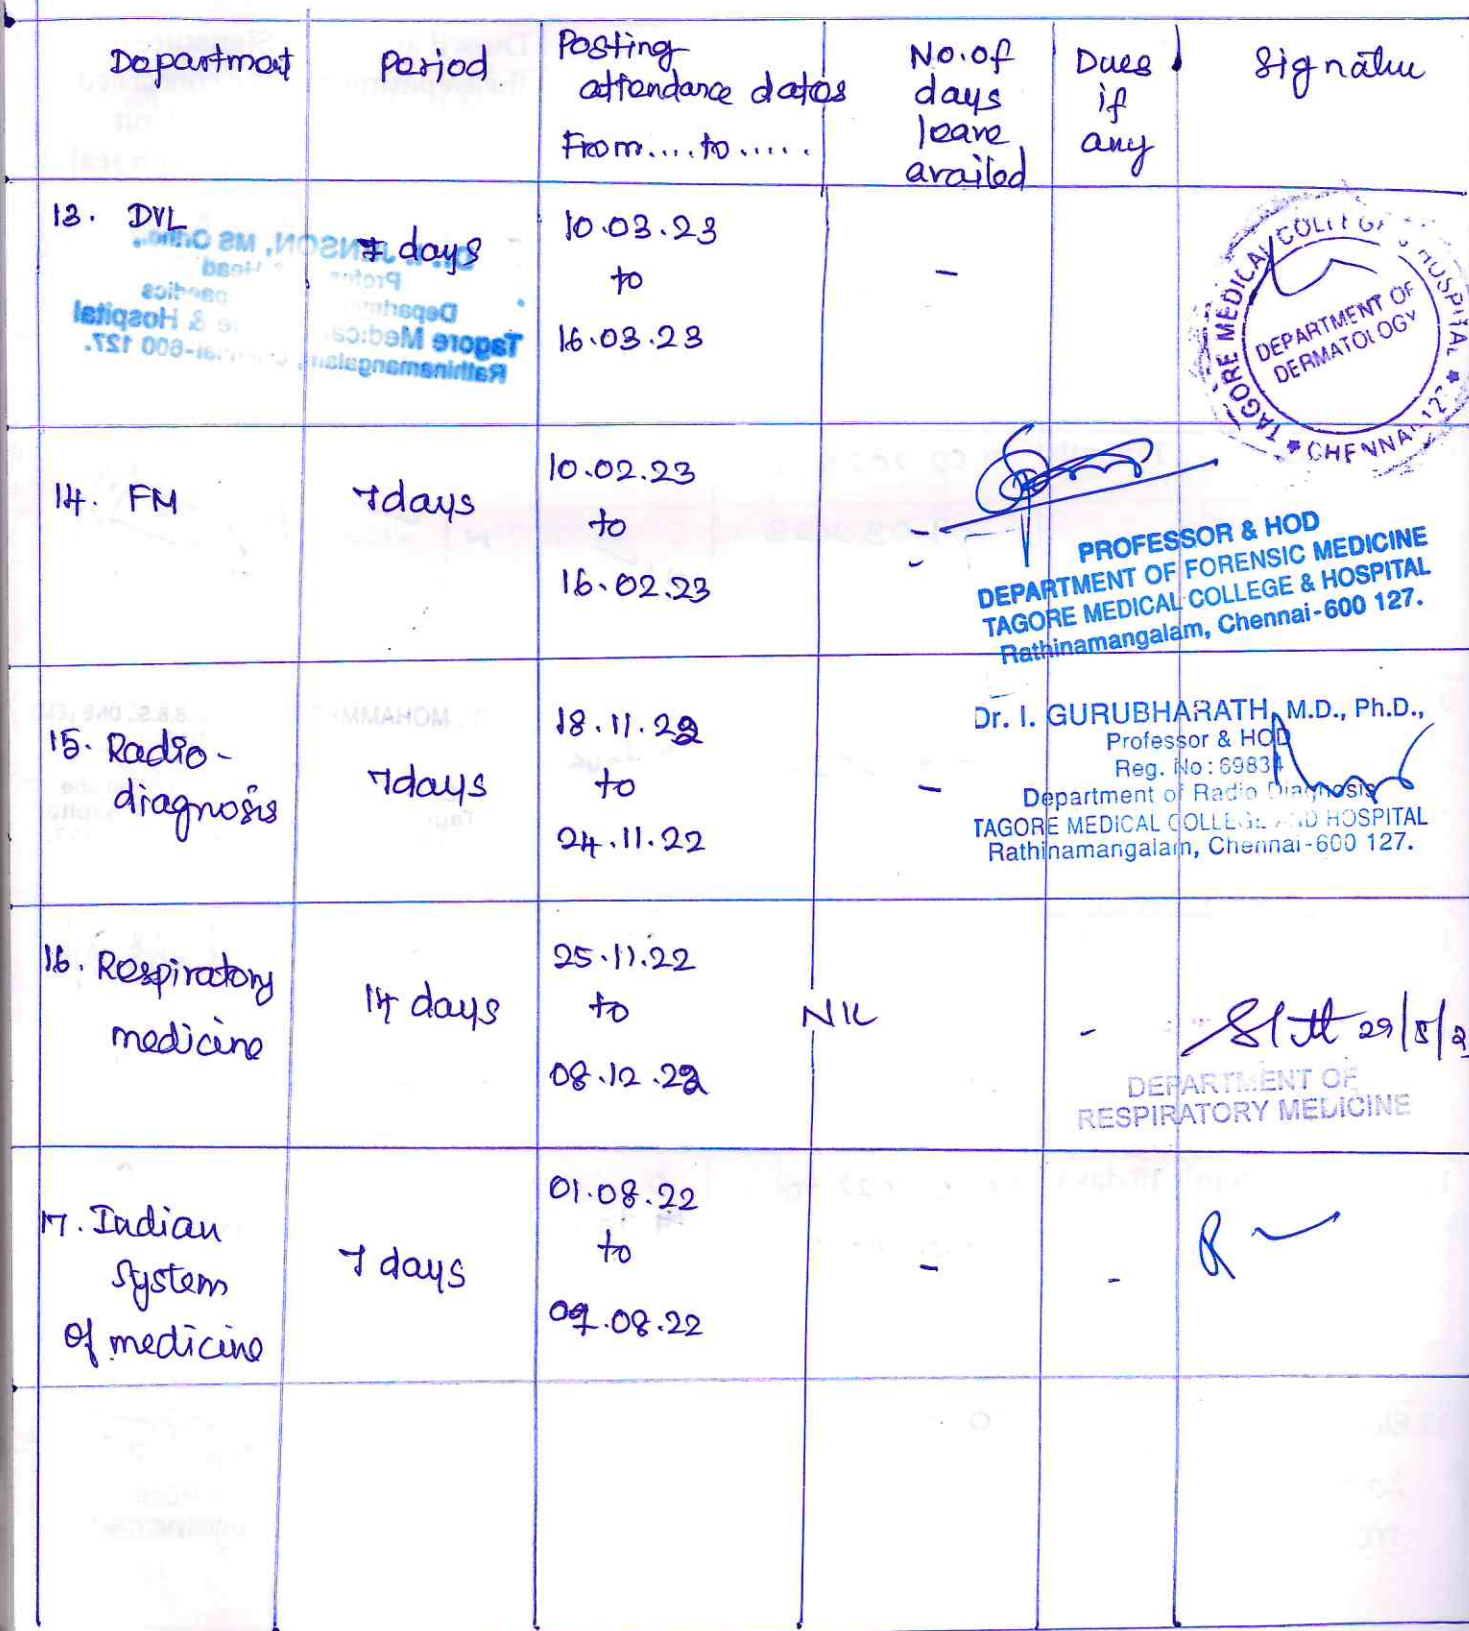 Department
Period
Posting
attendance dates
From....to.....
No.of
days
leave
availed
Dues
if
any
Signature
13. DVL
7 days
10.03.23
to
16.03.23
-
TAGORE MEDICAL COLLEGE & HOSPITAL
* CHENNAI
DEPARTMENT OF
DERMATOLOGY
Tagore Medical
& Hospital
Rathinamangalam, Chennai-600 127.
14. FM
7days
10.02.23
to
16.02.23
-
PROFESSOR & HOD
DEPARTMENT OF FORENSIC MEDICINE
TAGORE MEDICAL COLLEGE & HOSPITAL
Rathinamangalam, Chennai-600 127.
15. Radio-
diagnosis
7days
18.11.22
to
24.11.22
-
Dr. I. GURUBHARATH, M.D., Ph.D.,
Professor & HOD
Reg. No: 69834
Department of Radio Diagnosis
TAGORE MEDICAL COLLEGE AND HOSPITAL
Rathinamangalam, Chennai-600 127.
16. Respiratory
medicine
14 days
25.11.22
to
08.12.22
NIL
-
29/5/2
DEPARTMENT OF
RESPIRATORY MEDICINE
17. Indian
System
Of medicine
7 days
01.08.22
to
07.08.22
-
-